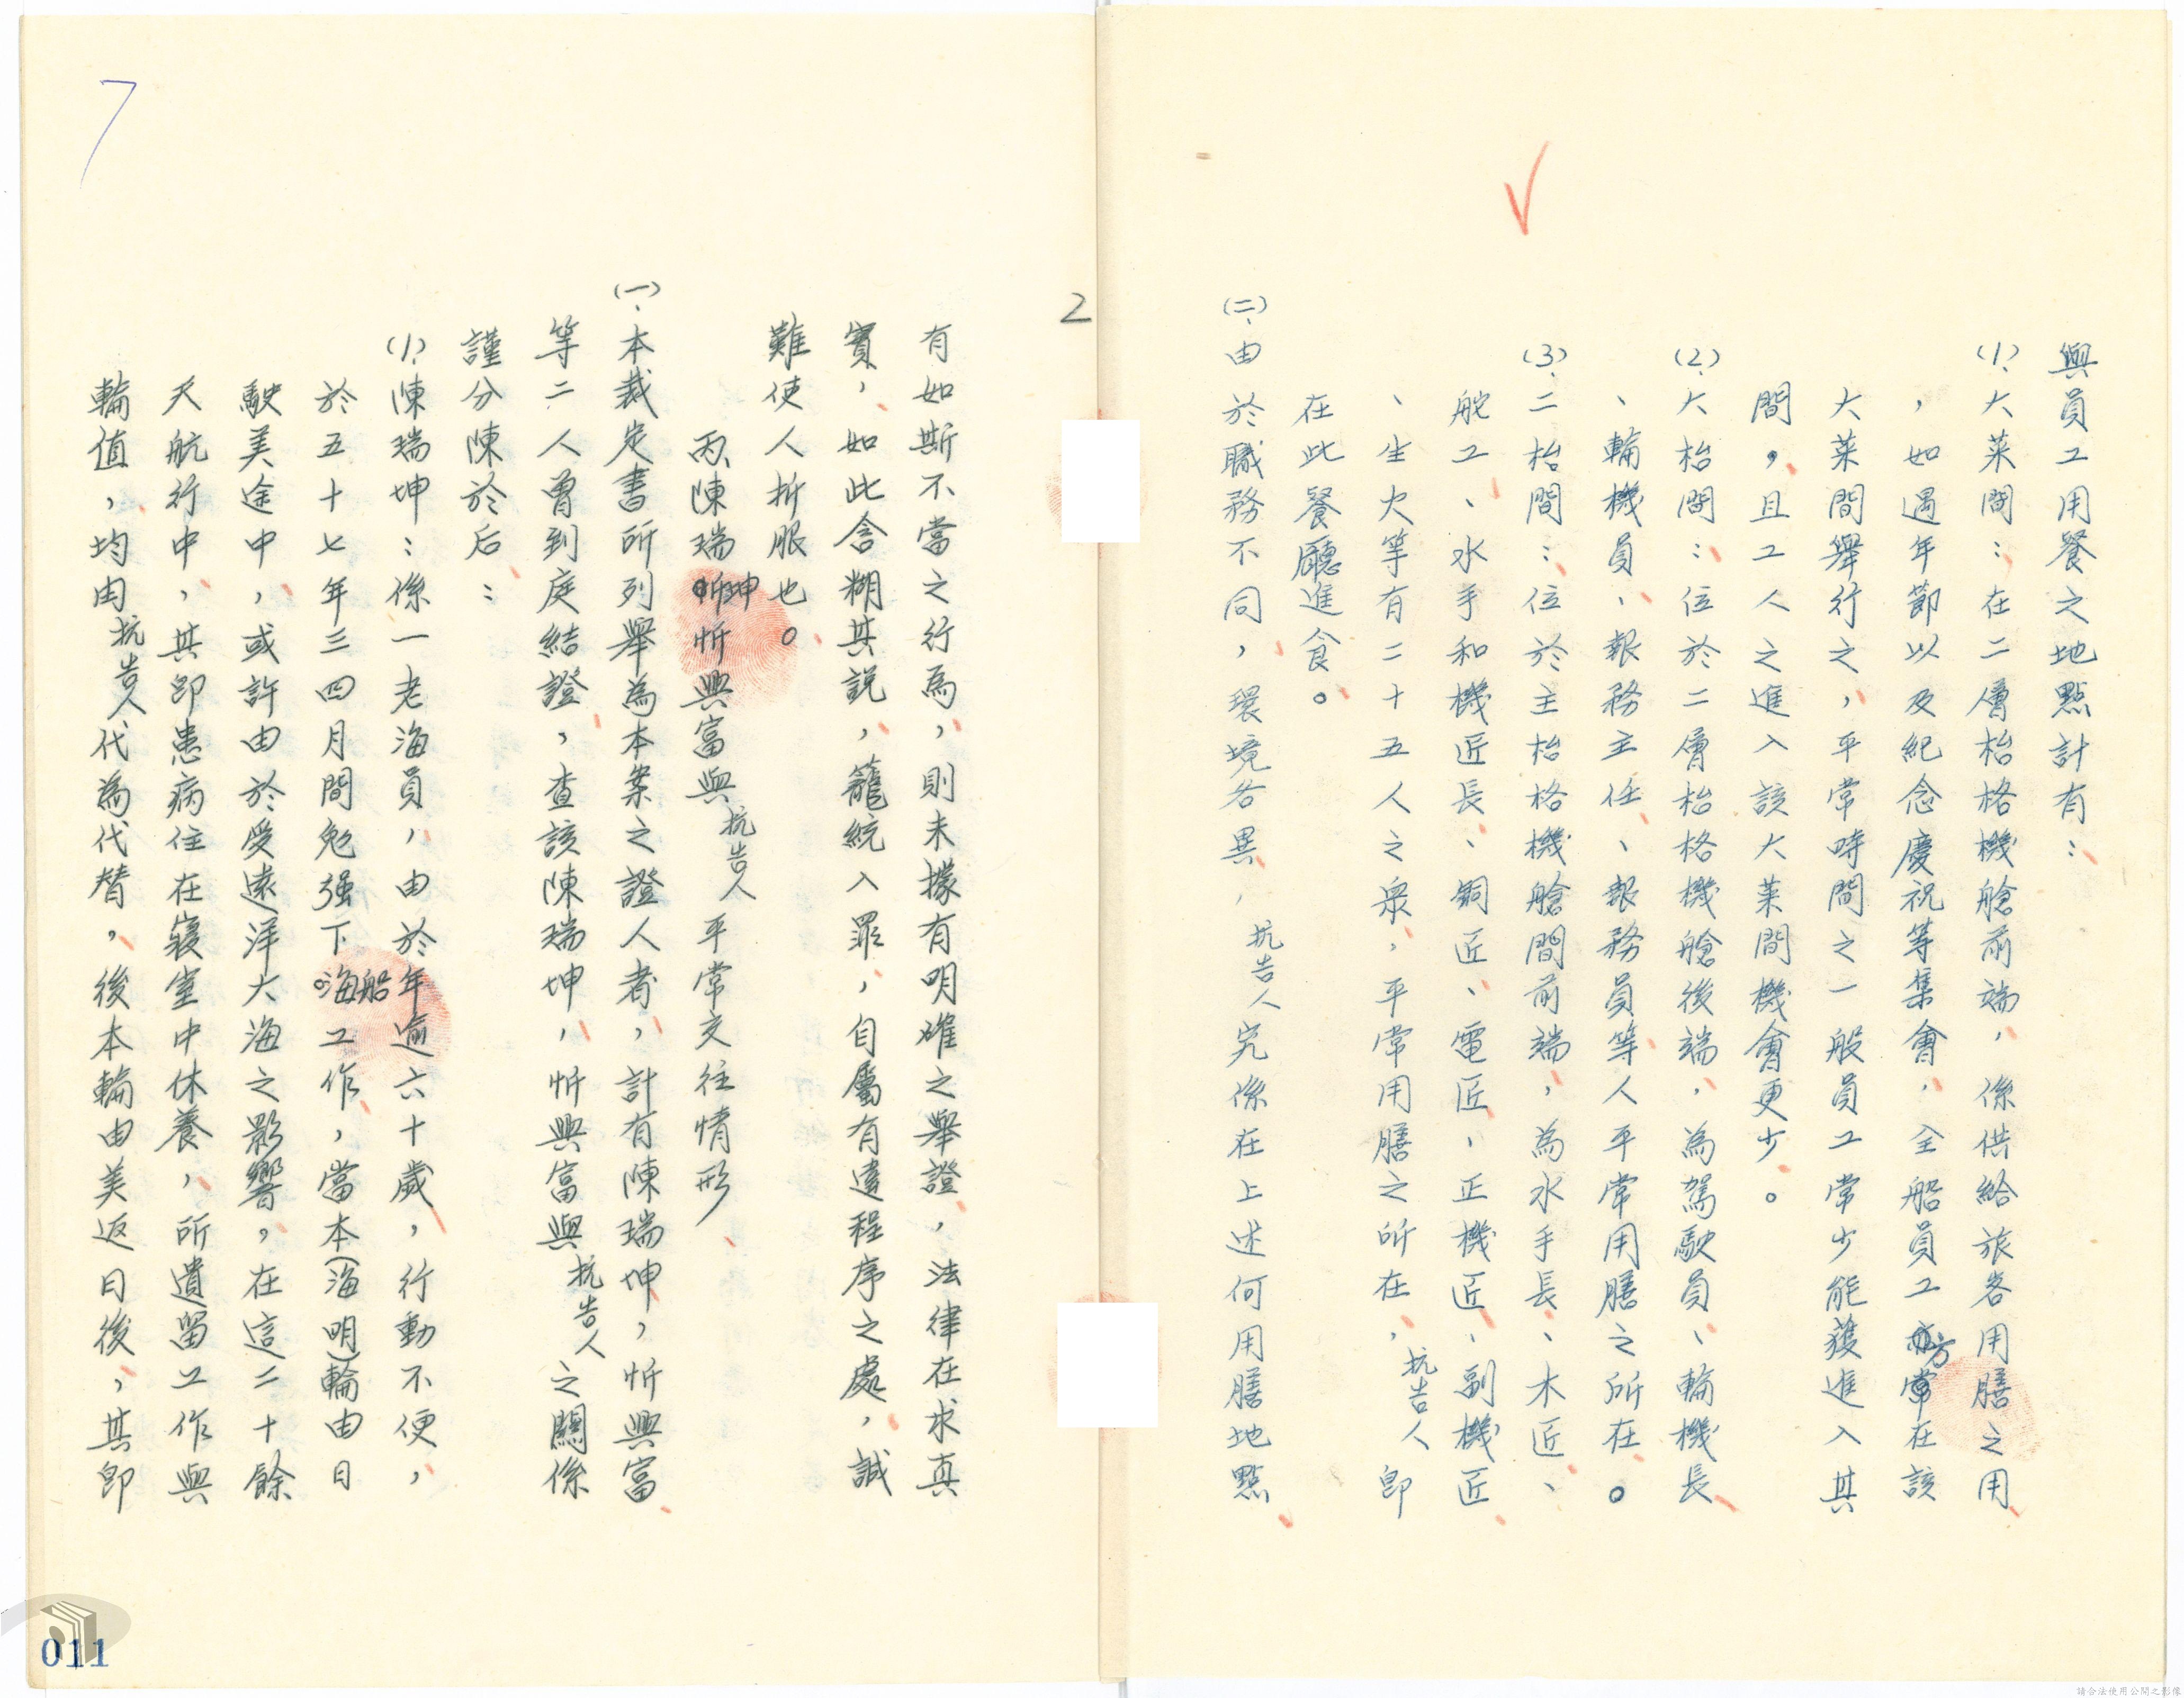 與員工用餐之地點計有：
(1)、大菜間：在二層枱格機艙前端，係供給旅客用膳之用
，如遇年節以及紀念慶祝等集會，全船員工方在該
大菜間舉行之，平常時間之一般員工常少能獲進入其
間，且工人之進入該大菜間機會更少。
(2)、大枱間：位於二層枱格機艙後端，為駕駛員、輪機長
、輪機員、報務主任、報務員等人平常用膳之所在。
(3)、二枱間：位於主枱格機艙間前端，為水手長、木匠、
舵工、水手和機匠長、銅匠、電匠、正機匠、副機匠
、生火等有二十五人之眾，平常用膳之所在，抗告人即
在此餐廳進食。
(二)、由於職務不同，環境各異，抗告人究係在上述何用膳地點
2
有如斯不當之行為，則未據有明確之舉證，法律在求真
實，如此含糊其說，籠統入罪，自屬有違程序之處，誠
難使人折服也。
丙、陳瑞坤忻興富與抗告人平常交往情形
(一)、本裁定書所列舉為本案之證人者，計有陳瑞坤，忻興富
等二人曾到庭結證，查該陳瑞坤，忻興富與抗告人之關係
謹分陳於后：
(1)、陳瑞坤：係一老海員，由於年逾六十歲，行動不便，
於五十七年三四月間勉强下船工作，當本(海明)輪由日
駛美途中，或許由於受遠洋大海之影響，在這二十餘
天航行中，其即患病住在寢室中休養，所遺留工作與
輪值，均由抗告人代為代替，後本輪由美返日後，其即
7
011
請合法使用公開之影像